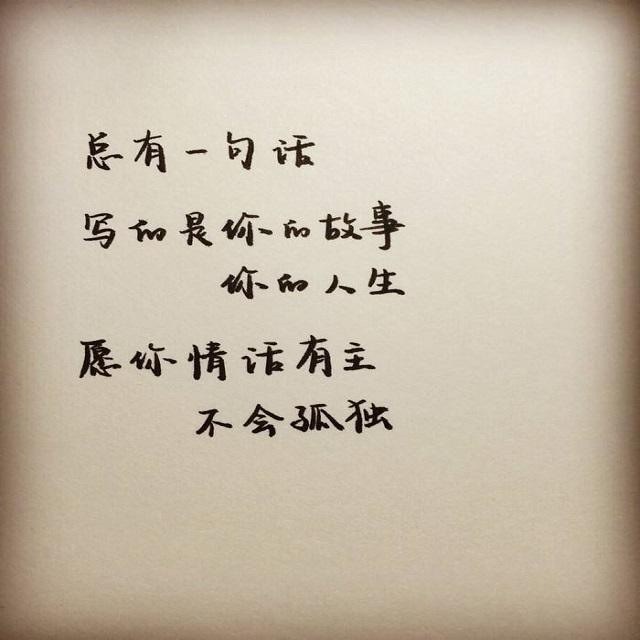 总有一句话
写的是你的故事
你的人生
愿你情话有主
不会孤独